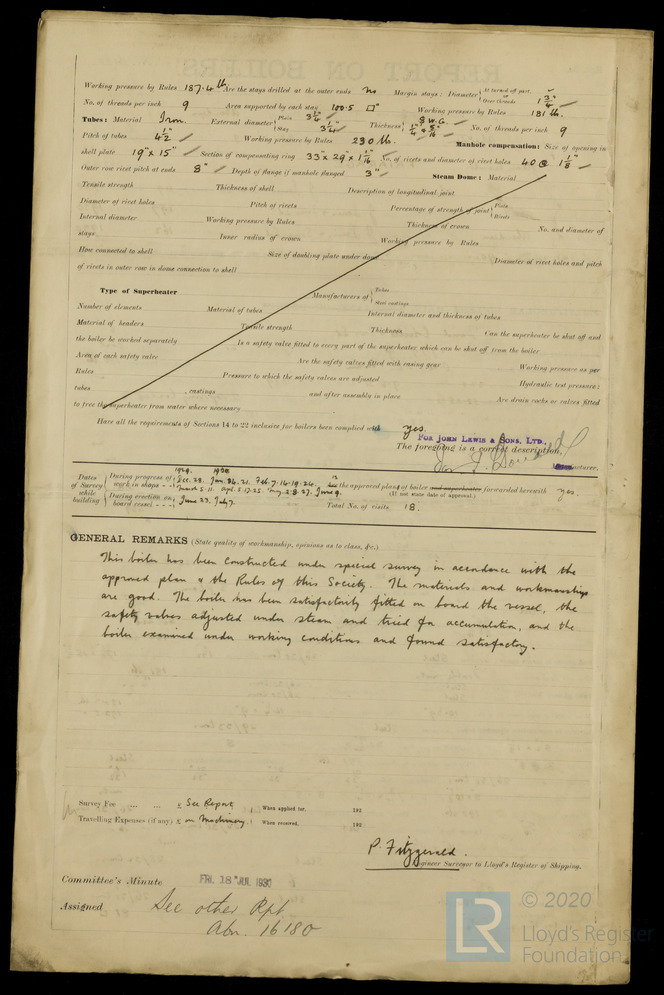 Working pressure by Rules 187.4 lb Are the stays drilled at the outer ends no Margin stays: Diameter { At turned off part, or Over threads 1 3/4"
No. of threads per inch 9 Area supported by each stay 100.5 □" Working pressure by Rules 181 lb.
Tubes: Material Iron External diameter { Plain 3 1/4" Stay 3 1/4" Thickness { 8 W.G. 1/4" & 5/16" No. of threads per inch 9
Pitch of tubes 4 1/2" Working pressure by Rules 230 lb. Manhole compensation: Size of opening in
shell plate 19" x 15" Section of compensating ring 33" x 29" x 1 1/16" No. of rivets and diameter of rivet holes 40 @ 1 1/8"
Outer row rivet pitch at ends 8" Depth of flange if manhole flanged 3" Steam Dome: Material
Tensile strength Thickness of shell Description of longitudinal joint
Diameter of rivet holes Pitch of rivets Percentage of strength of joint { Plate Rivets
Internal diameter Working pressure by Rules Thickness of crown No. and diameter of
stays Inner radius of crown Working pressure by Rules
How connected to shell Size of doubling plate under dome Diameter of rivet holes and pitch
of rivets in outer row in dome connection to shell
Type of Superheater Manufacturers of { Tubes Steel castings
Number of elements Material of tubes Internal diameter and thickness of tubes
Material of headers Tensile strength Thickness Can the superheater be shut off and
the boiler be worked separately Is a safety valve fitted to every part of the superheater which can be shut off from the boiler
Area of each safety valve Are the safety valves fitted with easing gear Working pressure as per
Rules Pressure to which the safety valves are adjusted Hydraulic test pressure:
tubes , castings and after assembly in place Are drain cocks or valves fitted
to free the superheater from water where necessary
Have all the requirements of Sections 14 to 22 inclusive for boilers been complied with yes.
FOR JOHN LEWIS & SONS, LTD.,
The foregoing is a correct description,
Manufacturer.
Dates of Survey while building { During progress of work in shops - - 1929. Dec. 28. 1930 Jan. 21. Feb. 7. 14. 19. 24.
During erection on board vessel - - - June 23. July 7.
the approved plan of boiler and superheater forwarded herewith yes.
(If not state date of approval.)
Total No. of visits 18.
GENERAL REMARKS (State quality of workmanship, opinions as to class, &c.)
This boiler has been constructed under special survey in accordance with the
approved plan & the Rules of this Society. The materials and workmanship
are good. The boiler has been satisfactorily fitted on board the vessel, the
safety valves adjusted under steam and tried for accumulation, and the
boiler examined under working conditions and found satisfactory.
Survey Fee ... ... £ See Report } When applied for, 192
Travelling Expenses (if any) £ on Machinery. } When received, 192
P. Fitzgerald.
Engineer Surveyor to Lloyd's Register of Shipping.
Committee's Minute FRI. 18 JUL 1930
Assigned See other Rpt
Abn. 16180
© 2020
LR
Lloyd's Register
Foundation